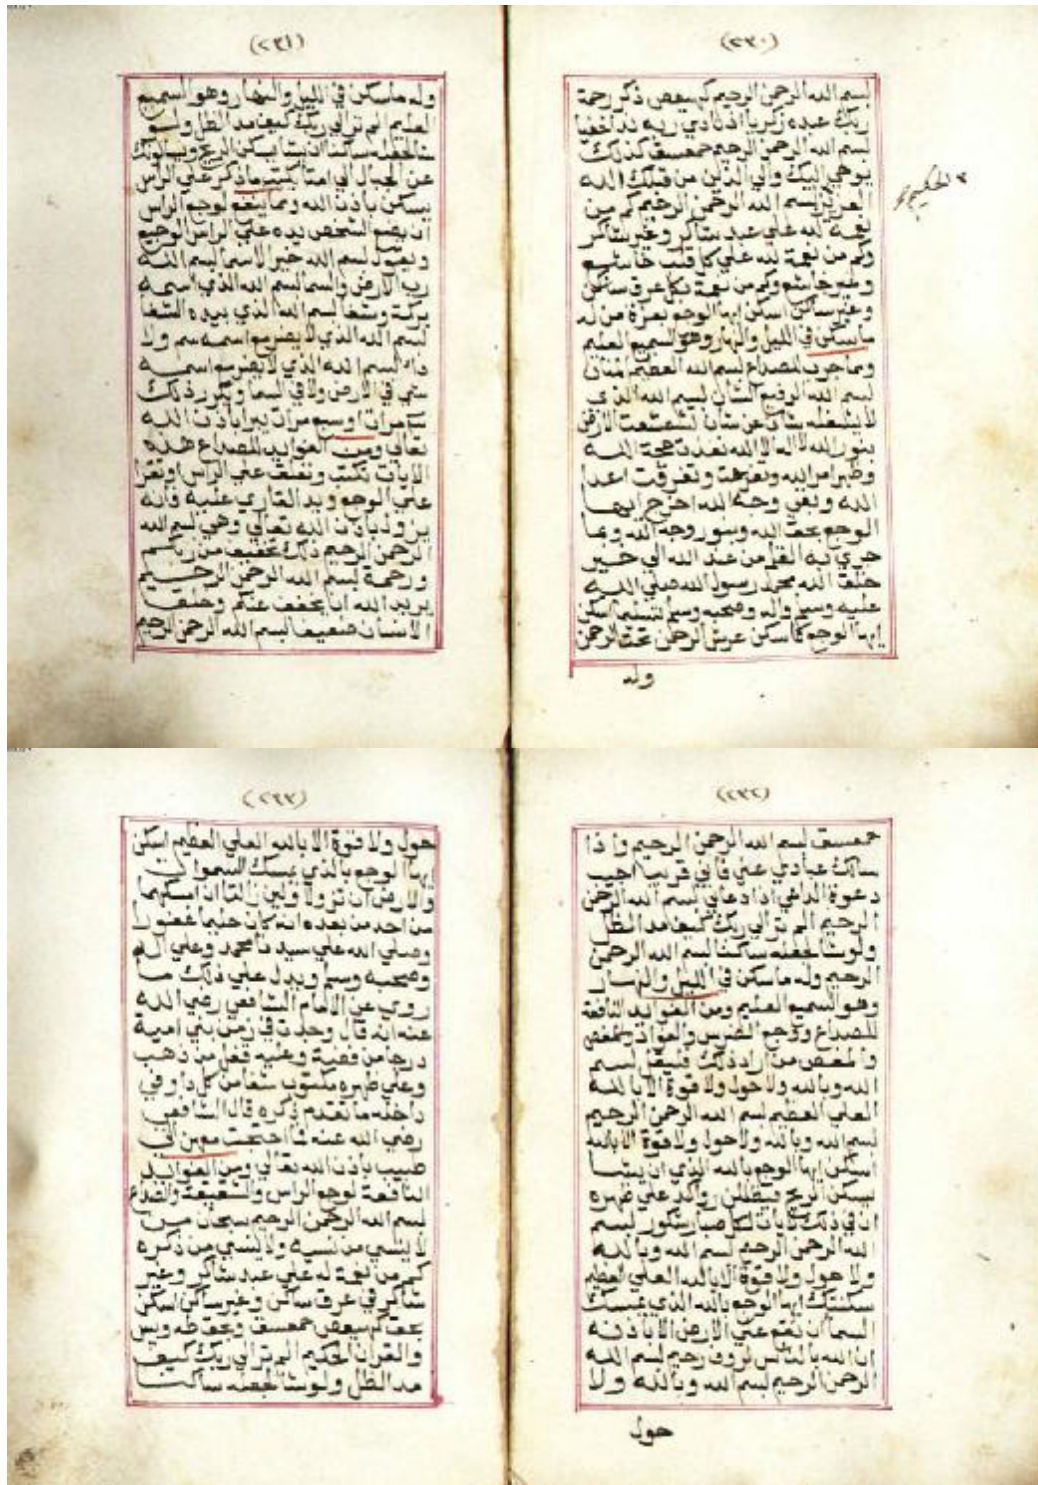 (٢٣٠)
بسم الله الرحمن الرحيم كهيعص ذكر رحمة
ربك عبده زكريا اذ نادي ربه ندا خفيا
بسم الله الرحمن الرحيم حمعسق كذلك
يوحي اليك والي الذين من قبلك الله
العزيز بسم الله الرحمن الرحيم كم من
نعمة لله علي عبد شاكر وغير شاكر
وكم من نعمة لله علي كل قلب خاشع
وغير خاشع وكم من نعمة لكل عرق ساكن
وغير ساكن اسكن ايها الوجع بعزة من له
ما سكن في الليل والنهار وهو السميع العليم
ومما جرب للصداع بسم الله العظيم المنان
بسم الله الرفيع الشان بسم الله الذي
لا يشغله شان عن شان تشعشعت الارض
بنور الله لا اله الا الله نفدت حجة الله
وظهر امر الله وتفرقت اعدا
الله وبقي وجه الله اخرج ايها
الوجع بحق الله وبنور وجه الله وبما
جري به القلم من عند الله الي خير
خلق الله محمد رسول الله صلي الله
عليه وسلم واله وصحبه وسلم تسليما اسكن
ايها الوجع كما سكن عرش الرحمن تحت الرحمن
وله
الحكيم
(٢٣١)
وله ما سكن في الليل والنهار وهو السميع
العليم الم تر الي ربك كيف مد الظل ولو
شا لجعله ساكنا ان يشا يسكن الريح ويسالونك
عن الجبال الي امتا يكتب ما ذكر علي الراس
يسكن باذن الله ومما ينفع لوجع الراس
ان يضع الشخص يده علي الراس الوجيع
ويقول بسم الله خير الاسما بسم الله
رب الارض والسما بسم الله الذي اسمه
بركة وشفا بسم الله الذي بيده الشفا
بسم الله الذي لا يضر مع اسمه سم ولا
داء بسم الله الذي لا يضر مع اسمه
شي في الارض ولا في السما ويكرر ذلك
مرات او سبع مرات يبرا باذن الله
تعالي ومن الفوايد للصداع هذه
الايات تكتب وتعلق علي الراس او تقرا
علي الوجع ويد القاري عليه فانه
يزول باذن الله تعالي وهي بسم الله
الرحمن الرحيم ذلك تخفيف من ربكم
ورحمة بسم الله الرحمن الرحيم
يريد الله ان يخفف عنكم وخلق
الانسان ضعيفا بسم الله الرحمن الرحيم
(٢٣٢)
حمعسق بسم الله الرحمن الرحيم واذا
سالك عبادي عني فاني قريب اجيب
دعوة الداعي اذا دعاني بسم الله الرحمن
الرحيم الم تر الي ربك كيف مد الظل
ولو شا لجعله ساكنا بسم الله الرحمن
الرحيم وله ما سكن في الليل والنهار
وهو السميع العليم ومن الفوايد النافعة
للصداع ووجع الضرس والفواد
والمغص من اراد ذلك فليقل بسم
الله وبالله ولا حول ولا قوة الا بالله
العلي العظيم بسم الله الرحمن الرحيم
بسم الله وبالله ولا حول ولا قوة الا بالله
اسكن ايها الوجع بالله الذي ان يشا
يسكن الريح فيظللن رواكد علي ظهره
ان في ذلك لايات لكل صبار شكور بسم
الله الرحمن الرحيم بسم الله وبالله
ولا حول ولا قوة الا بالله العلي العظيم
سكنتك ايها الوجع بالله الذي يمسك
السما ان تقع علي الارض الا باذنه
ان الله بالناس لروف رحيم بسم الله
الرحمن الرحيم بسم الله وبالله ولا
حول
(٢٣٣)
حول ولا قوة الا بالله العلي العظيم اسكن
ايها الوجع بالذي يمسك السموات
والارض ان تزولا ولين زالتا ان امسكهما
من احد من بعده انه كان حليما غفورا
وصلي الله علي سيدنا محمد وعلي اله
وصحبه وسلم ويدل علي ذلك ما
روي عن الامام الشافعي رضي الله
عنه انه قال وجدت في زمن بني امية
درجا من فضة وعليه قفل من ذهب
وعلي ظهره مكتوب شفا من كل دا وفي
داخله ما تقدم ذكره قال الشافعي
رضي الله عنه فما احتجت معهن الي
طبيب باذن الله تعالي ومن الفوايد
النافعة لوجع الراس والشقيقة والصداع
بسم الله الرحمن الرحيم سبحان من
لا ينسي من نسيه ولا ينسي من ذكره
كم من نعمة لله علي عبد شاكر وغير
شاكر في عرق ساكن وغير ساكن اسكن
بحق كهيعص حمعسق وبحق طه ويس
والقران الحكيم الم تر الي ربك كيف
مد الظل ولو شا لجعله ساكنا